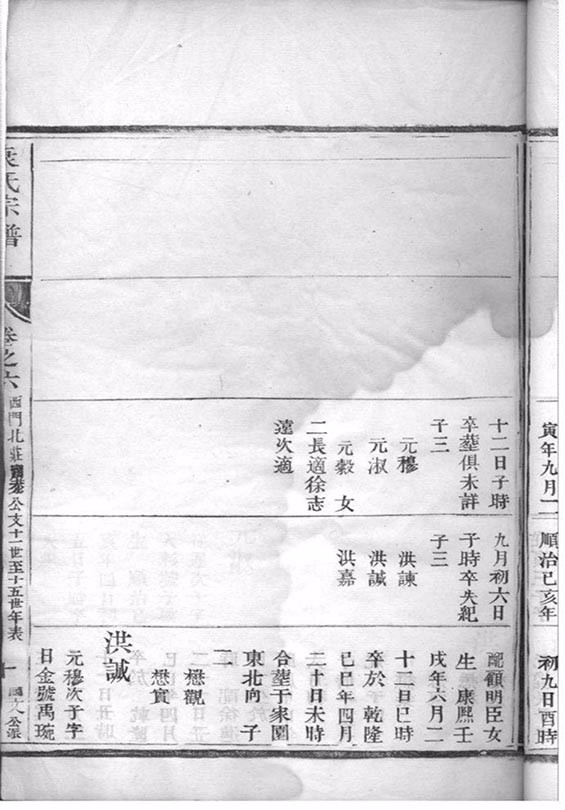 寅年九月二
順治己亥年
初九日酉時
十二日子時
卒塟俱未詳
子三
元穆
元淑
元穀 女
二長適徐志
遠次適
九月初六日
子時卒失紀
子三
洪諫
洪誠
洪嘉
配顧明臣女
生 康熙壬
戌年六月二
十二日巳時
卒於 乾隆
己巳年四月
二十日未時
合塟于家園
東北向 子
二 懋觀
懋實
洪誠
元穆次子字
曰金號禹琬
氏宗譜
卷之六
西門北莊 公支十一世至十五世年表
十
公派